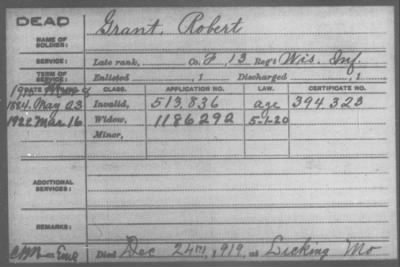 DEAD
NAME OF SOLDIER: Grant, Robert
SERVICE: Late rank, Co. F, 13 Reg't Wis. Inf.
TERM OF SERVICE: Enlisted , 1 Discharged , 1
DATE CLASS. APPLICATION NO. LAW. CERTIFICATE NO.
1884. May 23 Invalid, 513,836 age 394 323
1922 Mar 16 Widow, 1186292 5-1-20
Minor,
ADDITIONAL SERVICES:
REMARKS:
Died Dec 24th, 1919, at Licking Mo